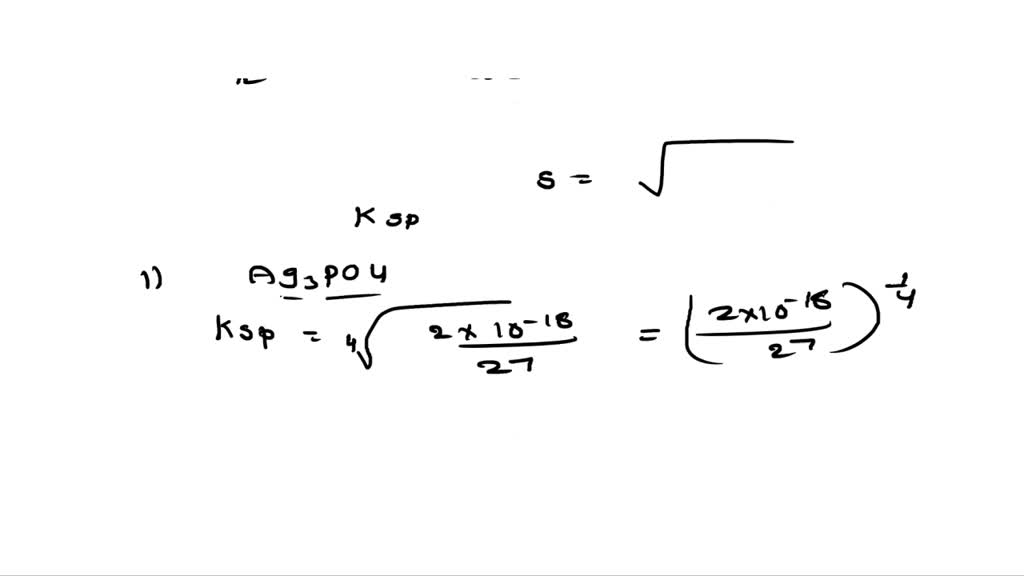 s = √
Ksp
1) Ag₃PO4
Ksp = ⁴√(2 × 10⁻¹⁸ / 27) = (2×10⁻¹⁸ / 27)^(1/4)